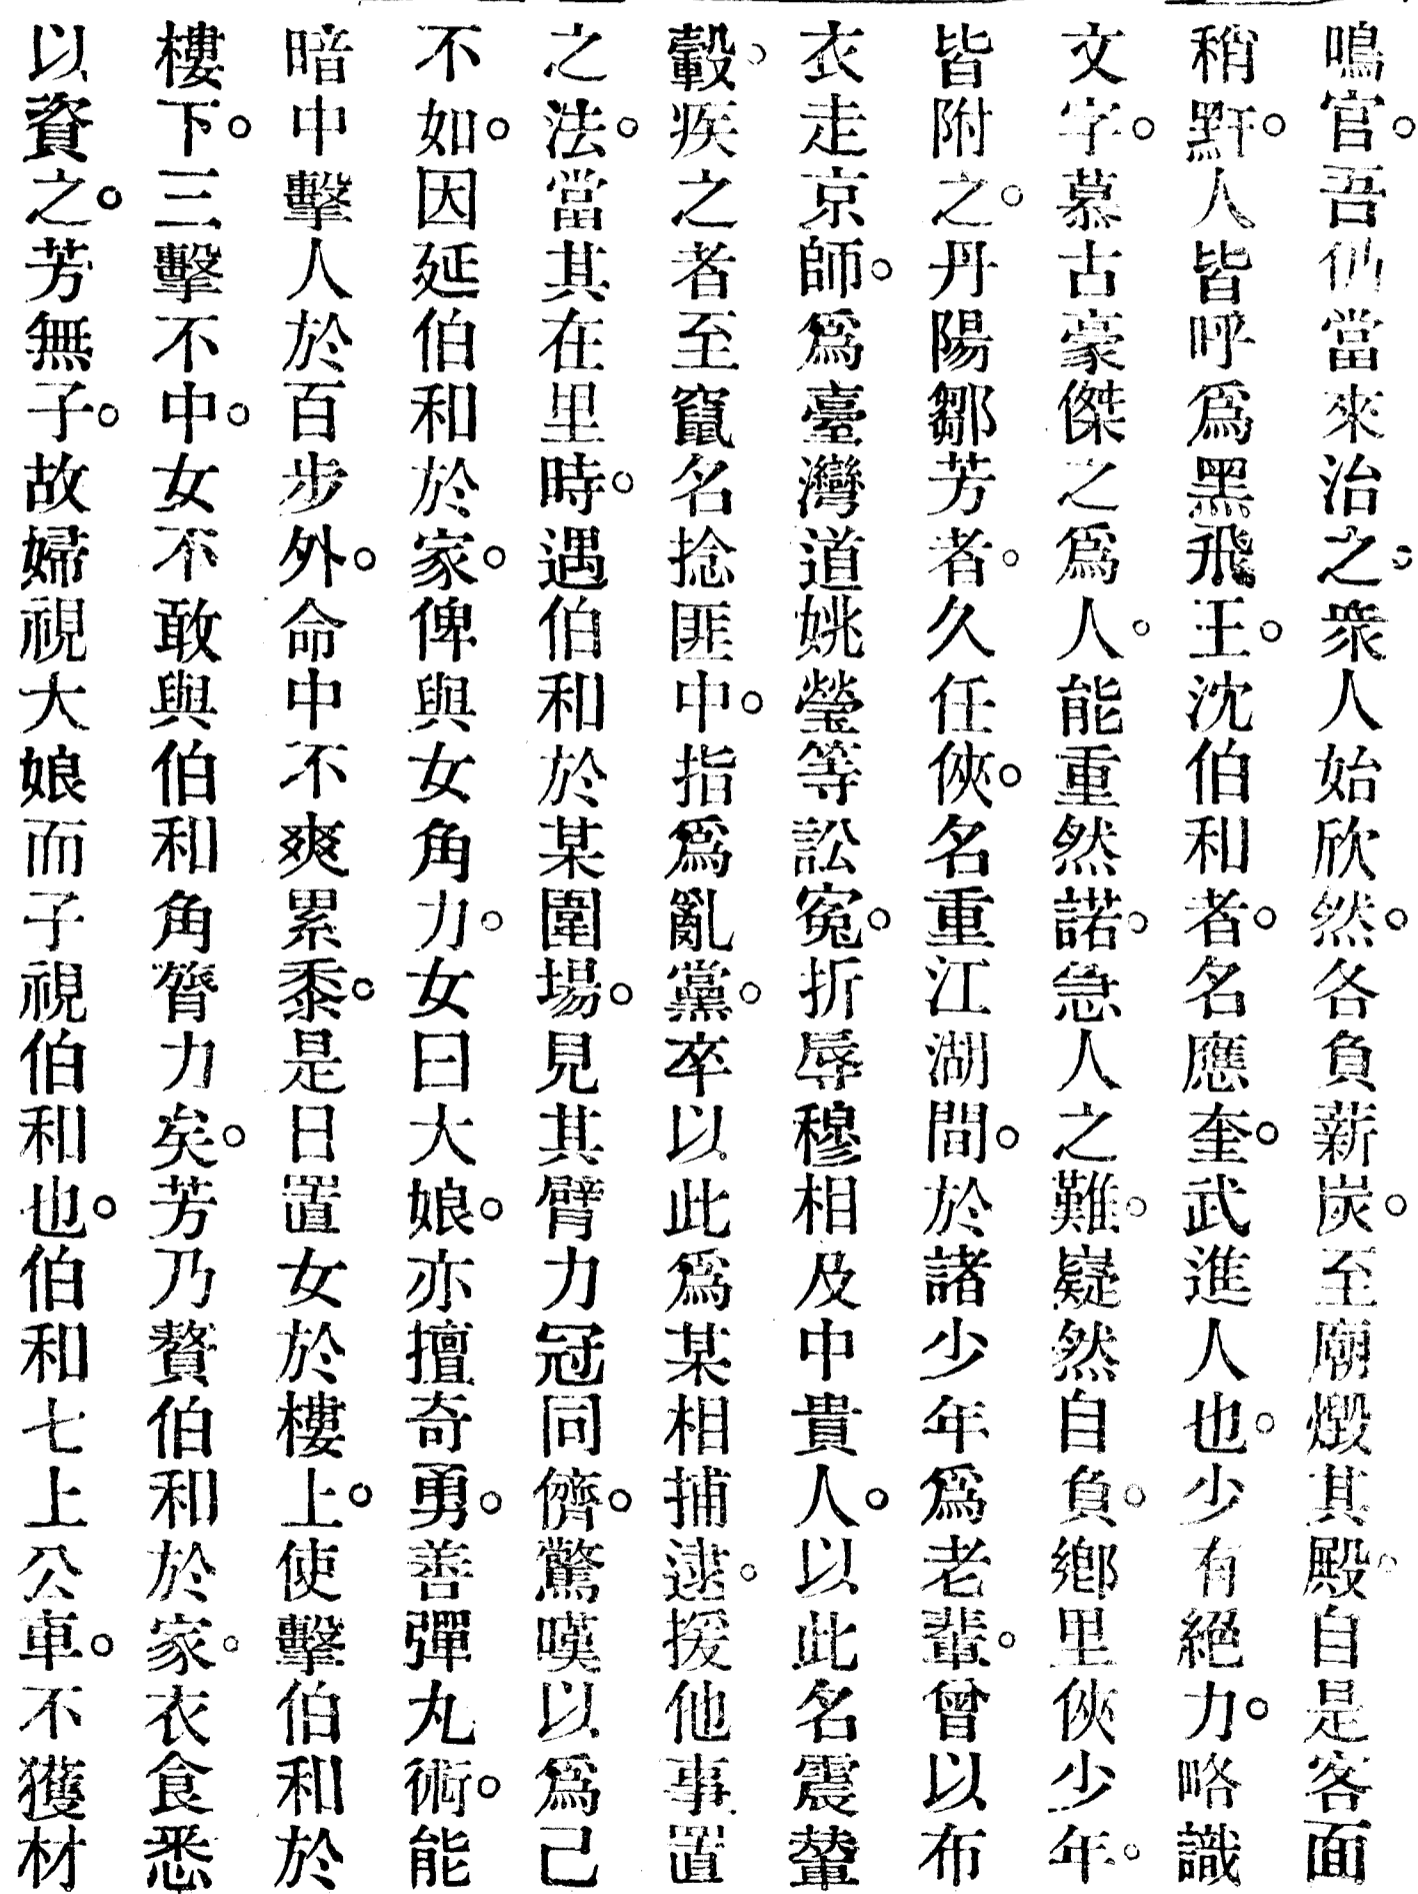 鳴官。吾仍當來治之。衆人始欣然。各負薪炭。至廟燬其殿。自是客面
稍黚。人皆呼爲黑飛王。沈伯和者。名應奎。武進人也。少有絕力。略識
文字。慕古豪傑之爲人。能重然諾。急人之難。嶷然自負。鄕里俠少年。
皆附之。丹陽鄒芳者。久任俠。名重江湖間。於諸少年爲老輩。曾以布
衣走京師。爲臺灣道姚瑩等訟寃。折辱穆相及中貴人。以此名震輦
轂。疾之者至竄名捻匪中。指爲亂黨。卒以此爲某相捕逮。援他事置
之法。當其在里時。遇伯和於某圍場。見其臂力冠同儕。驚嘆以爲己
不如。因延伯和於家。俾與女角力。女曰大娘。亦擅奇勇。善彈丸術。能
暗中擊人於百步外。命中不爽累黍。是日置女於樓上。使擊伯和於
樓下。三擊不中。女不敢與伯和角膂力矣。芳乃贅伯和於家。衣食悉
以資之。芳無子。故婦視大娘而子視伯和也。伯和七上公車。不獲材